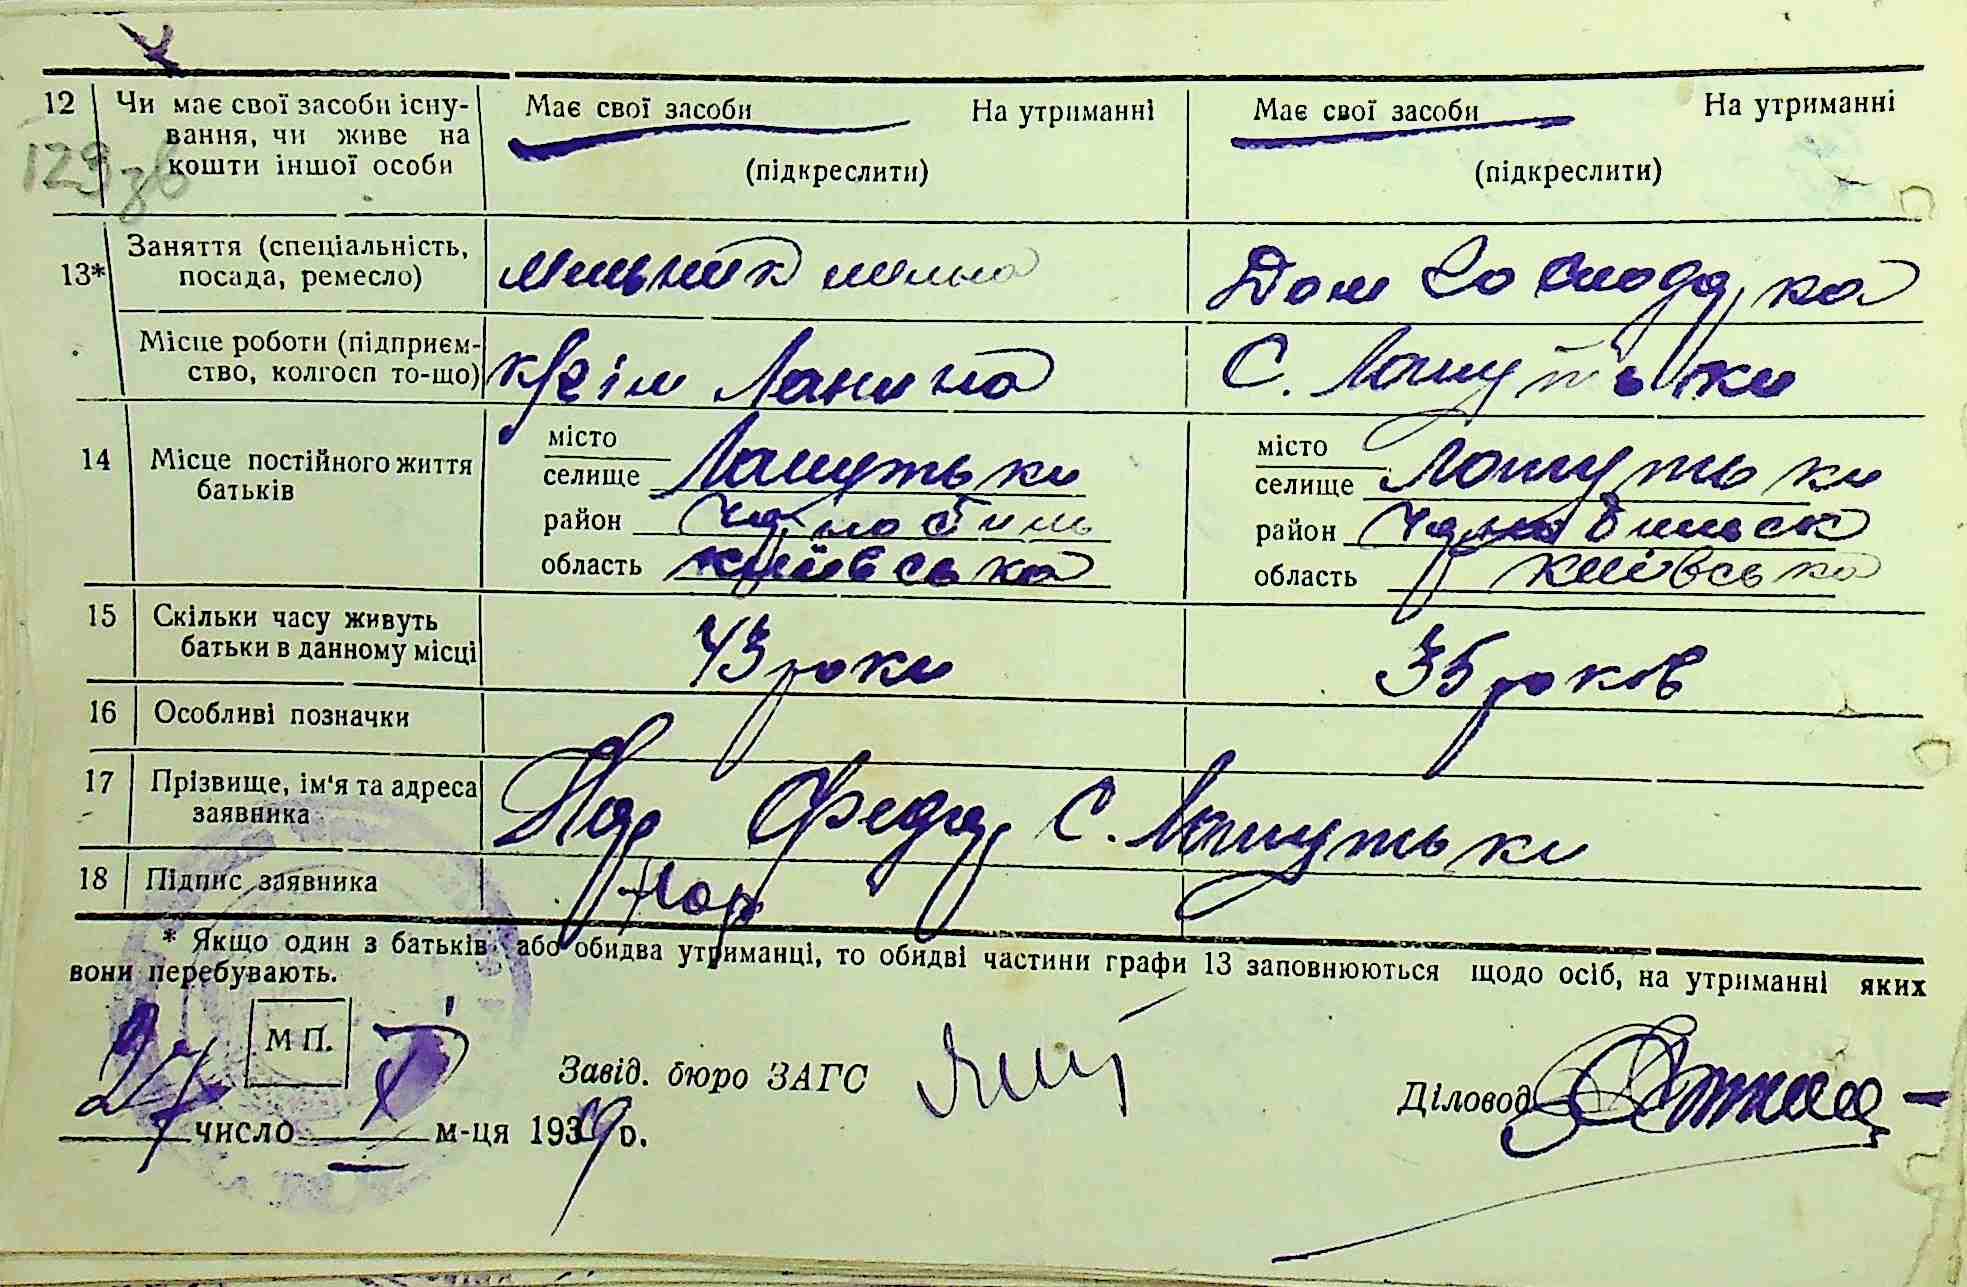 12 Чи має свої засоби існу-
вання, чи живе на
кошти іншої особи
Має свої засоби На утриманні
(підкреслити)
Має свої засоби На утриманні
(підкреслити)
129 зв
13* Заняття (спеціальність,
посада, ремесло)
Мельник
Дом Господарка
Місце роботи (підприєм-
ство, колгосп то-що)
Леніна
С. Лошутьки
14 Місце постійного життя
батьків
місто
селище Лошутьки
район Чорнобиль
область Київська
місто
селище Лошутьки
район Чорнобильск
область Київська
15 Скільки часу живуть
батьки в данному місці
43 роки
35 років
16 Особливі позначки
17 Прізвище, ім'я та адреса
заявника
Федор С. Лошутьки
18 Підпис заявника
* Якщо один з батьків або обидва утриманці, то обидві частини графи 13 заповнюються щодо осіб, на утриманні яких
вони перебувають.
М П.
27 число X м-ця 1939 р.
Завід. бюро ЗАГС
Діловод